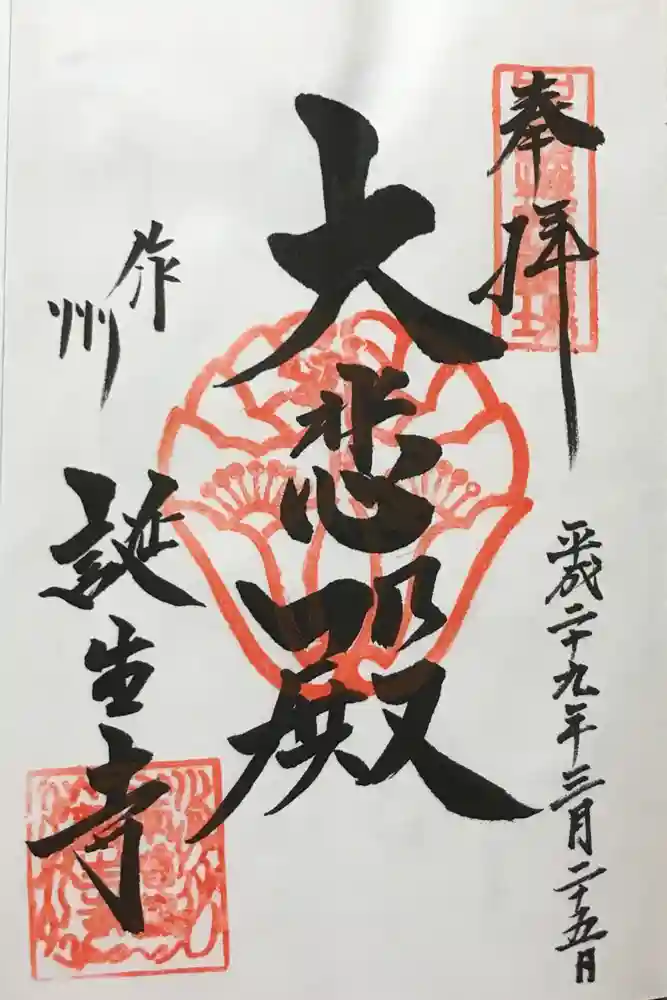 奉拝
平成二十九年三月二十五日
大悲殿
作州
誕生寺